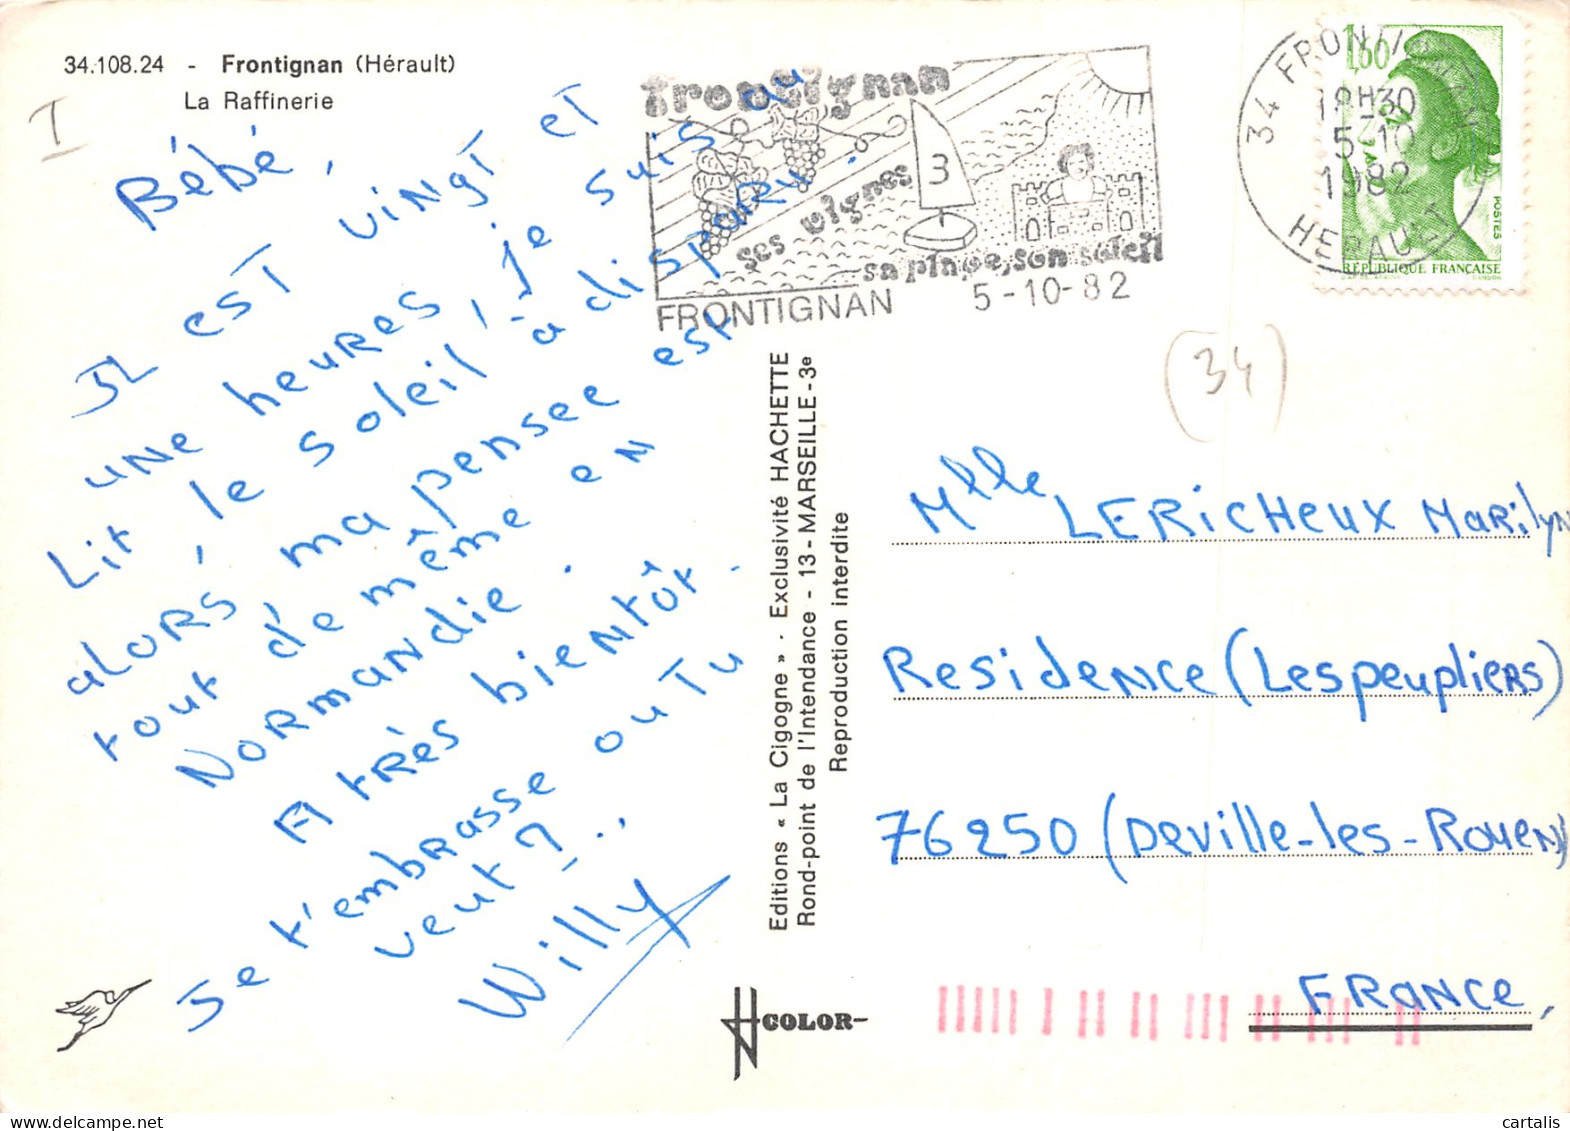 34.108.24 - Frontignan (Hérault)
La Raffinerie
I
Bébé,
Il est vingt et
une heures, je suis au
Lit, le soleil à disparu.
alors, ma pensee est
tout de même en
Normandie.
A très bientôt.
Je t'embrasse ou Tu
veut ?...
Willy
frontignan
ses vignes
3
sa plage, son soleil
FRONTIGNAN 5-10-82
34 FRONTIGNAN
18H30
5-10
1982
HERAULT
1,60
POSTES
RÉPUBLIQUE FRANÇAISE
(34)
Editions « La Cigogne » - Exclusivité HACHETTE
Rond-point de l'Intendance - 13 - MARSEILLE - 3e
Reproduction interdite
Mlle LERICHEUX Marilyn
Residence (Les peupliers)
76250 (Deville-les-Rouen)
FRANCE,
COLOR
cartalis